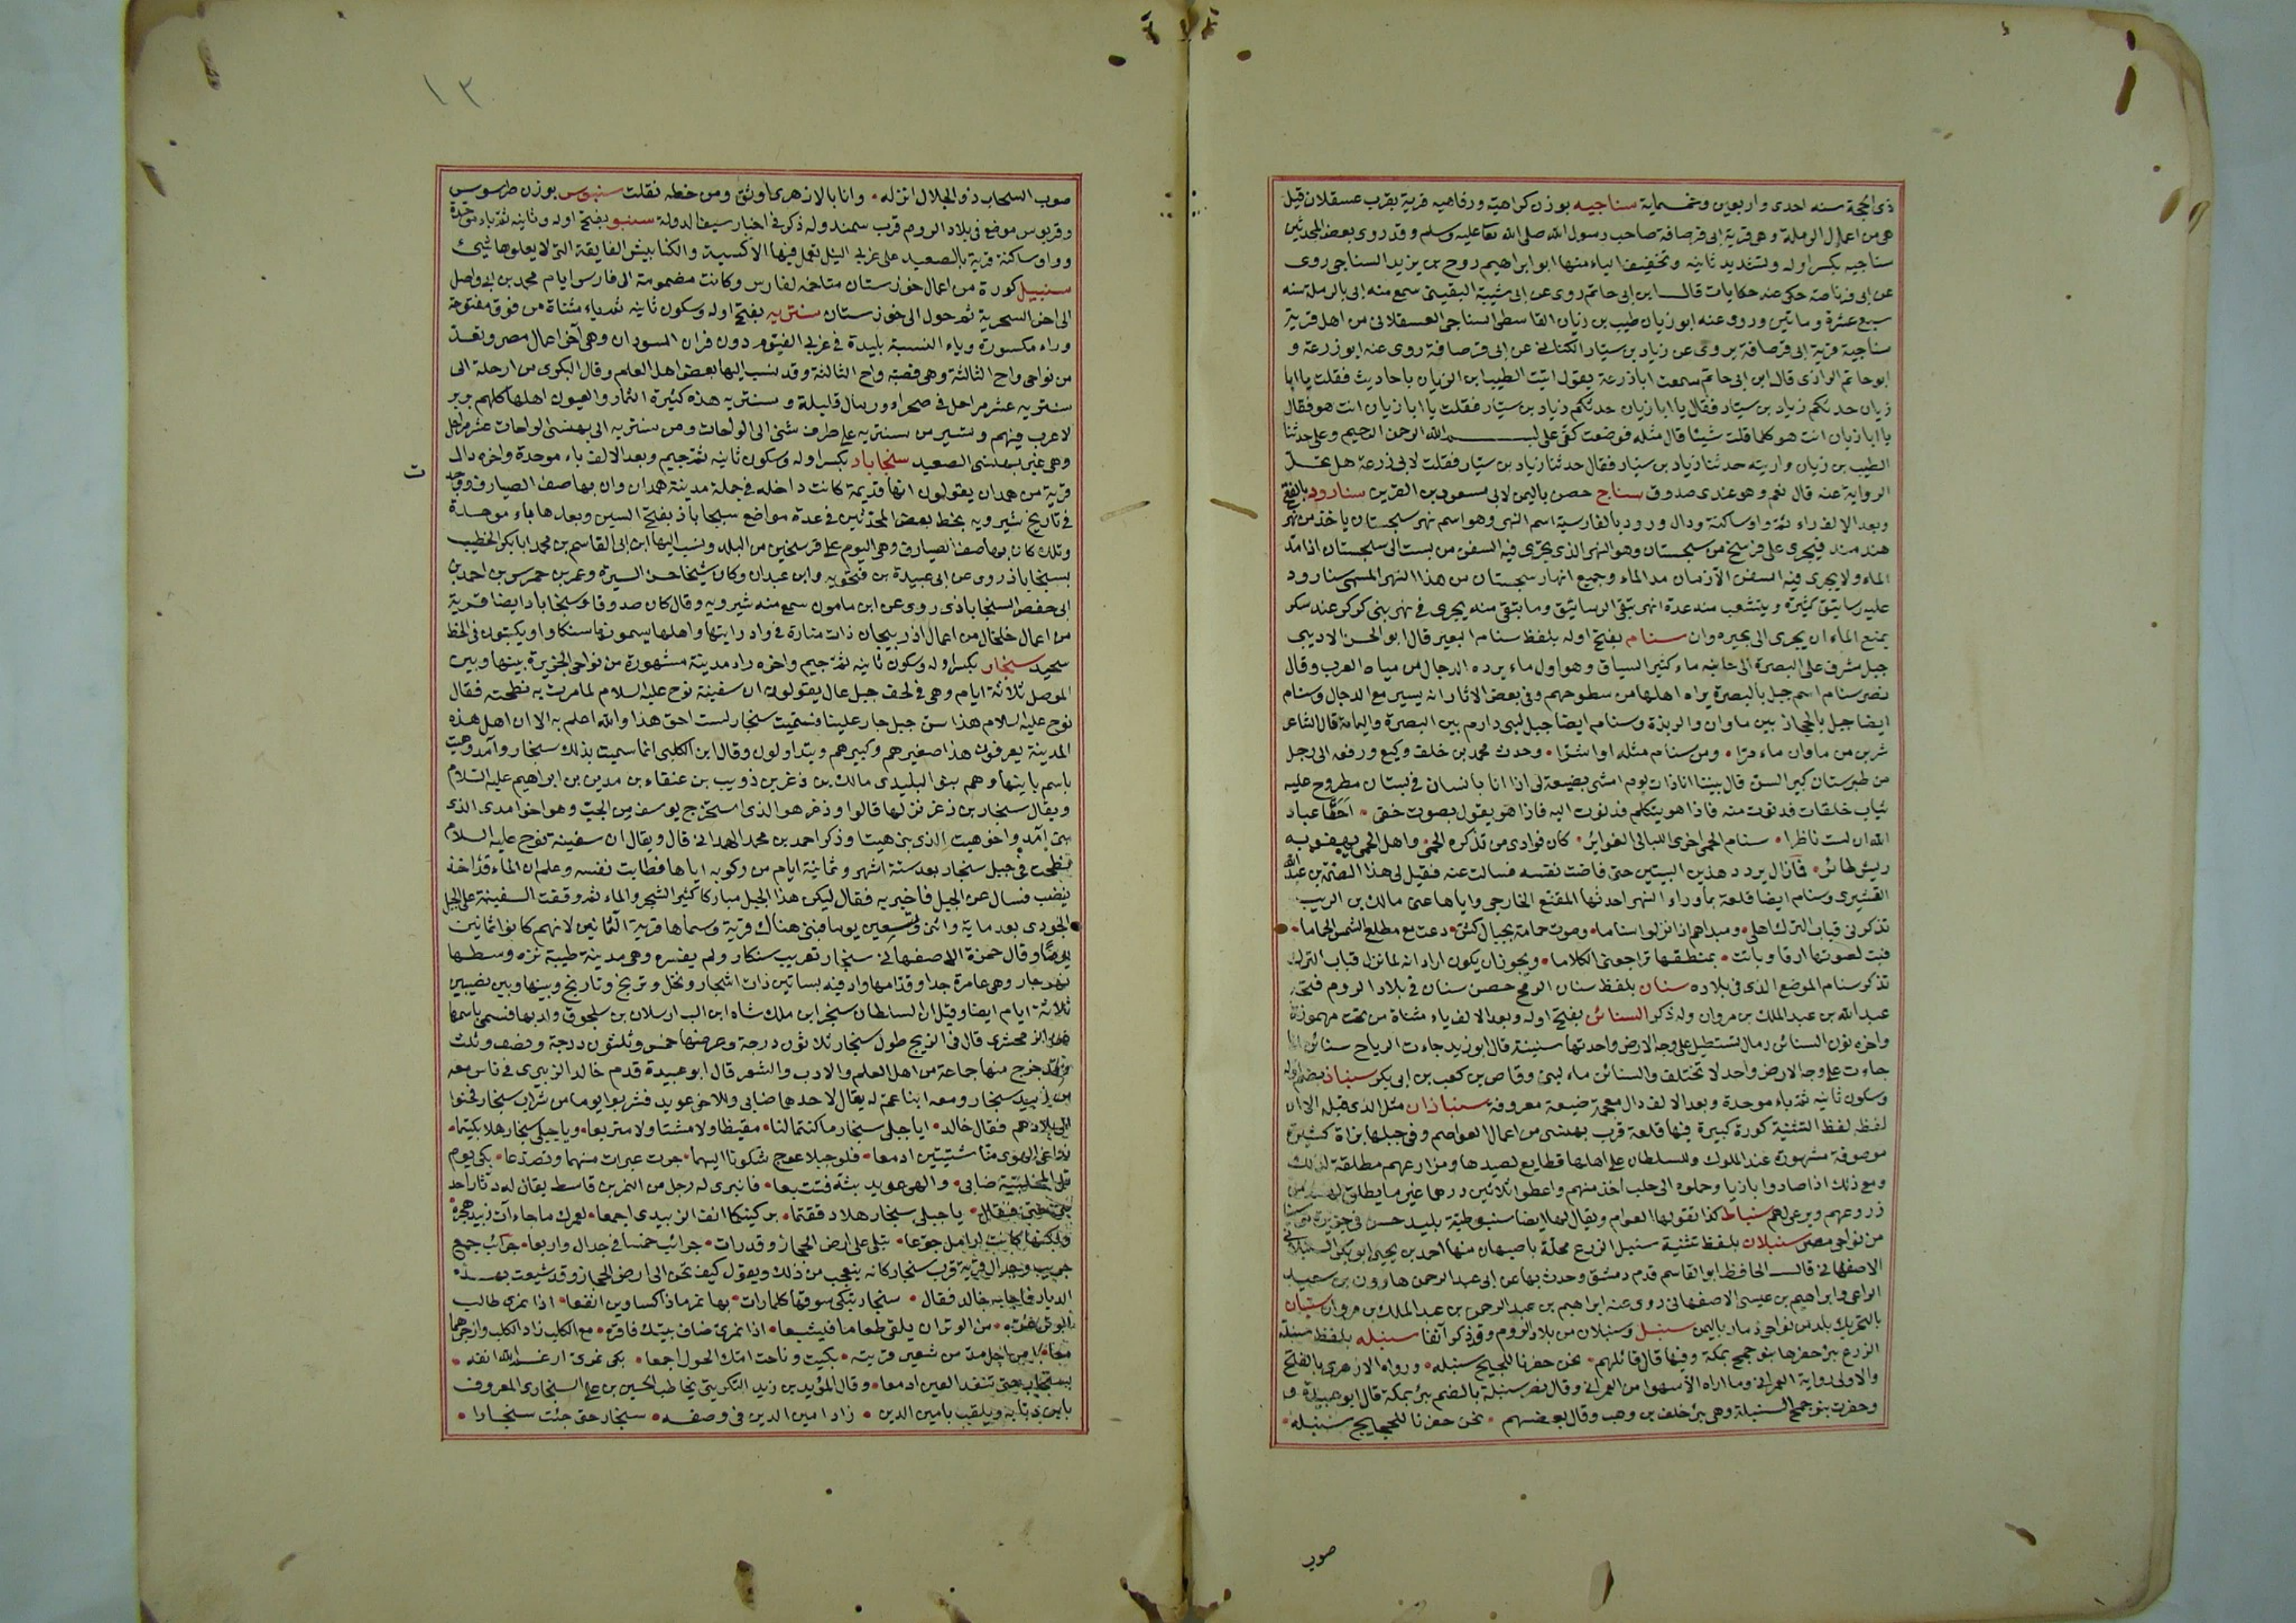 ذى الحجة سنه احدى واربعين وخمسماية سناجيه بوزن كراهية ورفاهيه قرية بقرب عسقلان قيل
هى من اعمال الرملة وهى قرية ابى قرصافة صاحب رسول الله صلى الله تعا عليه وسلم وقد روى بعض المحدثين
سناجيه بكسر اوله وتشديد ثانيه وتخفيف الياء منها ابو ابراهيم روح بن يزيد السناجى روى
عن ابى قرصافة حكى عنه حكايات قال ابن ابى حاتم روى عن ابى شيبة البقيتى سمع منه ابى بالرملة سنه
سبع عشرة وماتين وروى عنه ابو زيان طيب بن زيان القاسطى السناجى العسقلانى من اهل قرية
سناجية قرية ابى قرصافة يروى عن زياد بن سيار الكنانى عن ابى قرصافة روى عنه ابو زرعة و
ابو حاتم الرازى قال ابن ابى حاتم سمعت ابا زرعة يقول اتيت الطيب ابن الزيان باحاديث فقلت يا ابا
زيان حدثكم زياد بن سيار فقال يا ابا زيان حدثكم زياد بن سيار فقلت يا ابا زيان انت هو فقال
يا ابا زيان انت هو كلما قلت شيئا قال مثله فوضعت كفى على بسم الله الرحمن الرحيم وعلى حدثنا
الطيب بن زيان واريته حدثنا زياد بن سيار فقال حدثنا زياد بن سيار فقلت لابى زرعة هل تحل
الرواية عنه قال نعم وهو عندى صدوق سناج حصن باليمن لابى مسعود بن القرين سنارود بالفتح
وبعد الالف راء ثم واو ساكنة ودال ورود بالفارسية اسم النهر وهو اسم نهر سجستان ياخذ من نهر
هندمند فيجرى على فرسخ من سجستان وهو النهر الذى يجرى فيه السفن من بست الى سجستان اذا مد
الماء ولا يجرى فيه السفن الا زمان مد الماء وجميع انهار سجستان من هذا النهر المسمى سنارود
عليه رساتيق كثيرة ويتشعب منه عدة انهر تسقى الرساتيق وما بقى منه يجرى فى نهر بنى كركو عند سكر
يمنع الماء ان يجرى الى بحيره وان سنام بفتح اوله بلفظ سنام البعير قال ابو الحسن الاديبى
جبل مشرف على البصرة الى جانبه ماء كثير السياق وهو اول ماء يرده الدجال من مياه العرب وقال
نصر سنام اسم جبل بالبصرة يراه اهلها من سطوحهم وفى بعض الاثار انه يسير مع الدجال وسنام
ايضا جبل بالحجاز بين ماوان والربذة وسنام ايضا جبل لبنى دارم بين البصرة واليمامة قال الشاعر
شربن من ماوان ماء مرا ومن سنام مثله او اشرا وحدث محمد بن خلف وكيع ورفعه الى رجل
من طبرستان كبير السن قال بينا انا ذات يوم امشى بضيعة لى اذا انا بانسان فى بستان مطروح عليه
ثياب خلقات فدنوت منه فاذا هو يتكلم فدنوت اليه فاذا هو يقول بصوت خفى احقا عباد
الله ان لست ناظرا سنام الحمى اخرى الليالى الغوابر كان فوادى من تذكره الحمى واهل الحمى يهفو به
ريش طائر فما زال يردد هذين البيتين حتى فاضت نفسه فسالت عنه فقيل لى هذا الصمة بن عبد الله
القشيرى وسنام ايضا قلعة بما وراء النهر احدثها المقنع الخارجى واياها عنى مالك بن الريب
تذكرنى قباب الترك اهلى ومبداهم اذا نزلوا سناما وصوت حمامة بجبال كش دعت مع مطلع الشمس الحماما
فبت لصوتها ارقا وباتت بمنطقها تراجعنى الكلاما ويجوز ان يكون اراد انه لما نزل قباب الترك
تذكر سنام الموضع الذى فى بلاده سنان بلفظ سنان الرمح حصن سنان فى بلاد الروم فتحه
عبد الله بن عبد الملك بن مروان وله ذكر السنائن بفتح اوله وبعد الالف ياء مثناة من تحت مهموزة
واخره نون السنائن رمال تستطيل على وجه الارض واحدتها سنينة قال ابو زيد جاءت الرياح سنائن اذا
جاءت على وجه الارض واحد لا تختلف والسنائن ماء لبنى وقاص بن كعب بن ابى بكر سنباذ بضم اوله
وسكون ثانيه ثم باء موحدة وبعد الالف دال معجمة ضيعة معروفة سنباذان مثل الذى قبله الا ان
لفظه لفظ التثنية كورة كبيرة فيها قلعة قرب بهنسى من اعمال العواصم وفى جبلها بزاة كثيرة
موصوفة مشهورة عند الملوك وللسلطان على اهلها قطايع لصيدها ومزارعهم مطلقة لذلك
ومع ذلك اذا صادوا بازيا وحملوه الى حلب اخذ منهم واعطوا ثلاثين درهما غير ما يطلق لهم من
زروعهم ويرعى لهم سنباط كذا تقولها العوام ويقال لها ايضا سنبوطية بليد حسن فى جزيرة قوسنيا
من نواحى مصر سنبلان بلفظ تثنية سنبل الزرع محلة باصبهان منها احمد بن يحيى ابو بكر السنبلانى
الاصفهانى قال الحافظ ابو القاسم قدم دمشق وحدث بها عن ابى عبد الرحمن هارون بن سعيد
الراعى وابراهيم بن عيسى الاصفهانى روى عنه ابراهيم بن عبد الرحمن بن عبد الملك بن مروان سنبان
بالتحريك بلد من نواحى ذمار باليمن سنبل وسنبلان من بلاد الروم وقد ذكر آنفا سنبله بلفظ سنبلة
الزرع بئر حفرها بنو جمح بمكة وفيها قال قائلهم نحن حفرنا للحجيج سنبله ورواه الازهرى بالفتح
والاولى رواية العمرانى وما اراه الا سهوا من العمرانى وقال نصر سنبلة بالضم بئر بمكة قال ابو عبيدة و
وحفرت بنو جمح السنبلة وهى بئر خلف بن وهب وقال بعضهم نحن حفرنا للحجيج سنبله
صوب
١٣
صوب السحاب ذو الجلال انزله وانا بالازهرى اوثق ومن خطه نقلت سنبوس بوزن طرسوس
وقربوس موضع فى بلاد الروم قرب سمندو له ذكر فى اخبار سيف الدولة سنبو بفتح اوله وثانيه ثم باء موحدة
وواو ساكنة قرية بالصعيد على غربى النيل تعمل فيها الاكسية والكنابيش الفايقة التى لا يعلوها شيئ
سنبيل كورة من اعمال خوزستان متاخمة لفارس وكانت مضمومة الى فارس ايام محمد بن ابى واصل
الى اخر السجرية ثم حول الى خوزستان سنتريه بفتح اوله وسكون ثانيه ثم تاء مثناة من فوق مفتوحة
وراء مكسورة وياء النسبة بليدة فى غربى الفيوم دون فزان السودان وهى آخر اعمال مصر وتعد
من نواحى واح الثالثة وهى قصبة واح الثالثة وقد نسب اليها بعض اهل العلم وقال البكرى من ارحلة الى
سنتريه عشر مراحل فى صحراء ورمال قليلة وسنتريه هذه كثيرة الثمار والعيون اهلها كلهم بربر
لا عرب فيهم وتسير من سنتريه على طرف شتى الى الواحات ومن سنتريه الى بهنسى الواحات عشر مراحل
وهى غير بهنسى الصعيد سنجاباد بكسر اوله وسكون ثانيه ثم جيم وبعد الالف باء موحدة واخره دال
ت
قرية من همدان يقولون انها قديمة كانت داخله فى جملة مدينة همدان وان بها صف الصيارف ووجد
فى تاريخ شيرويه بخط بعض المحدثين فى عدة مواضع سبجاباذ بفتح السين وبعدها باء موحدة
وتلك كان بها صف الصيارف وهى اليوم على فرسخين من البلد ونسب اليها ابن ابى القاسم بن محمد ابا بكر الخطيب
بسبنجاباذ روى عن ابى عبيدة بن فنجويه وابن عبدان وكان شيخا حسن السيرة وعمر بن حمرس بن احمد بن
ابى حفص السنجاباذى روى عن ابن مامون سمع منه شيرويه وقال كان صدوقا وسنجاباد ايضا قرية
من اعمال خلخال من اعمال اذربيجان ذات منارة فى واد رايتها واهلها يسمونها سنكاوا ويكتبون فى الخط
سنجبذ سنجار بكسر اوله وسكون ثانيه ثم جيم واخره راء مدينة مشهورة من نواحى الجزيرة بينها وبين
الموصل ثلاثة ايام وهى فى لحف جبل عال يقولون ان سفينة نوح عليه السلام لما مرت به نطحته فقال
نوح عليه السلام هذا سن جبل جار علينا فسميت سنجار لست احق هذا والله اعلم به الا ان اهل هذه
المدينة يعرفون هذا صغيرهم وكبيرهم ويتداولون وقال ابن الكلبى انما سميت بذلك سنجار وآمد وهيت
باسم بانيها وهم بنو البلندى مالك بن ذعر بن ذويب بن عنقاء بن مدين بن ابراهيم عليه السلام
ويقال سنجار بن ذعر نزلها قالوا وذعر هو الذى استخرج يوسف من الجب وهو اخو آمدى الذى
بنى آمد واخو هيت الذى بنى هيتا وذكر احمد بن محمد الهمدانى قال ويقال ان سفينة نوح عليه السلام
نطحت فى جبل سنجار بعد ستة اشهر وثمانية ايام من ركوبه اياها فطابت نفسه وعلم ان الماء قد اخذ
ينضب فسال عن الجبل فاخبر به فقال ليكن هذا الجبل مباركا كثير الشجر والماء ثم وقفت السفينة على جبل
الجودى بعد ماية واثنى وتسعين يوما فبنى هناك قرية وسماها قرية الثمانين لانهم كانوا ثمانين
وقال حمزة الاصفهانى سنجار تعريب سنكار ولم يفسره وهى مدينة طيبة نزه وسطها
نهر جار وهى عامرة جدا وقدامها واد فيه بساتين ذات اشجار ونخل وترنج ونارنج وبينها وبين نصيبين
ثلاثة ايام ايضا وقيل ان السلطان سنجر ابن ملك شاه ابن الب ارسلان بن سلجوق ولد بها فسمى باسمها
عن الزمخشرى قال فى الزيج طول سنجار ثلاثون درجة وعرضها خمس وثلثون درجة ونصف وثلث
وقد خرج منها جماعة من اهل العلم والادب والشعر قال ابو عبيدة قدم خالد الزبيدى فى ناس معه
من زبيد سنجار ومعه ابنا عم له يقال لاحدهما ضابى وللاخر عويد فشربوا يوما من شراب سنجار فحنوا
الى بلادهم فقال خالد ايا جبلى سنجار ما كنتما لنا مقيظا ولا مشتا ولا متربعا ويا جبلى سنجار هلا بكيتما
لداعى الهوى منا شتيتين ادمعا فلو جبلا عوج شكونا اليهما جرت عبرات منهما وتصدعا بكى يوم
تل المحلبية ضابى والهى عويد بثه فتقنعا فانبرى له رجل من النمر بن قاسط يقال له دثار احد
بنى حيى فقال يا جبلى سنجار هلا دققتما بركنيكما انف الزبيدى اجمعا لعمرك ما جاءت زبيد لهجرة
ولكنها كانت ارامل جوعا تبكى على ارض الحجاز وقد رات جرائب خمسا فى جدال واربعا جرائب جمع
جريب وجدال قرية قرب سنجار كانه يتعجب من ذلك ويقول كيف تحن الى ارض الحجاز وقد شبعت بهذه
الديار فاجابه خالد فقال سنجار تبكى سوقها كلما رات بها نمريا ذا كساوين ايفعا اذا نمرى طالب
الوتر غره من الوتر ان يلقى طعاما فيشبعا اذا نمرى ضاف بيتك فاقره مع الكلب زاد الكلب وازجرهما
معا امن اجل مد من شعير قريته بكيت وناحت امك الحول اجمعا بكى نمرى ارغم الله انفه
بسنجار حتى تنفد العين ادمعا وقال المؤيد بن زيد التكريتى يخاطب الحسين بن على السنجارى المعروف
بابن دبابة ويلقب بامين الدين زاد امين الدين فى وصفه سنجار حتى جئت سنجارا